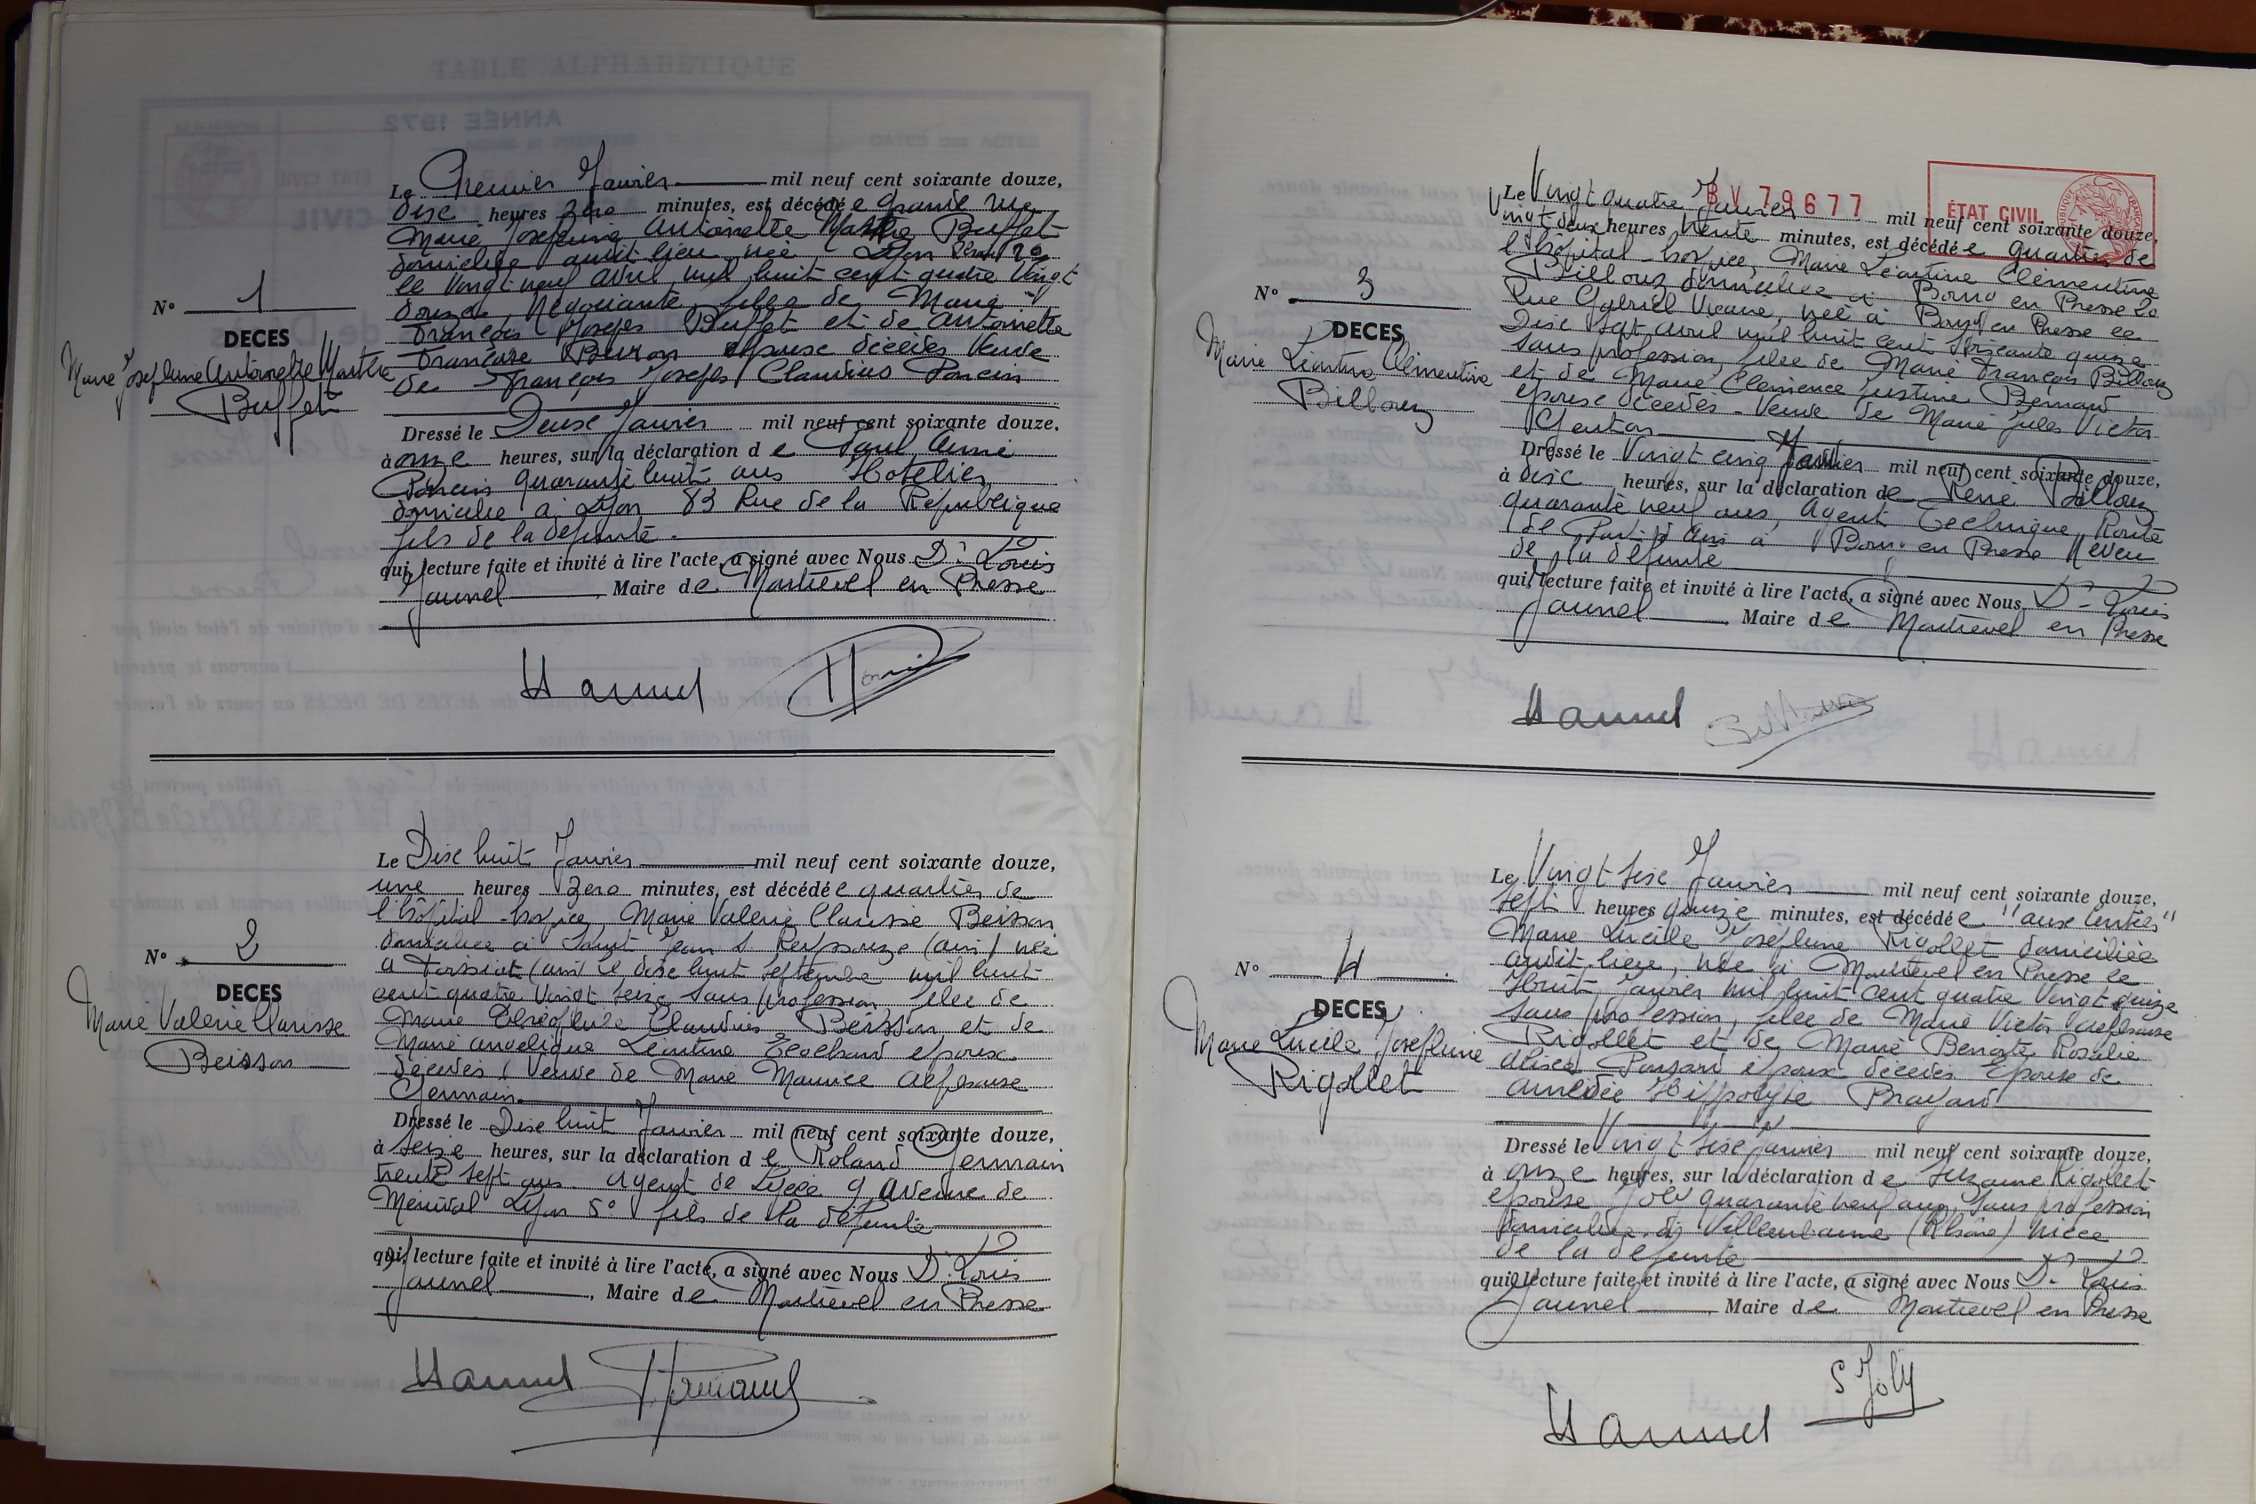 Le Premier Janvier mil neuf cent soixante douze,
dix heures zéro minutes, est décédé e grande rue
Marie Josephine Antoinette Marthe Buffet
domiciliée audit lieu née Lyon
le Vingt neuf avril mil huit cent quatre Vingt
douze Négociante, fille de Marie
François Joseph Buffet et de Antoinette
Buiron épouse décédés Veuve
de François Joseph Claudius Poncin
N° 1
DECES
Marie Josephine Antoinette Marthe
Buffet
Dressé le Deux Janvier mil neuf cent soixante douze.
à onze heures, sur la déclaration d e Paul Aimé
Poncin quarante huit ans Hotelier
domicilié à Lyon 83 Rue de la République
fils de la défunte.
qui, lecture faite et invité à lire l'acte, a signé avec Nous Dr Louis
Jaunel , Maire d e Montrevel en Bresse
Le Dix huit Janvier mil neuf cent soixante douze,
une heures Zero minutes, est décédé e quartier de
l'hôpital-hospice, Marie Valerie Clarisse Beisson
domiciliée à Saint Jean s/ Reyssouze (ain) née
a (ain) le dix huit septembre mil huit
cent quatre Vingt seize sans profession, fille de
Marie Claudius Beisson et de
Marie angélique Léontine epoux
décédés, Veuve de Marie Maurice Alphonse
Germain
N° 2
DECES
Marie Valerie Clarisse
Beisson
Dressé le Dix huit Janvier mil neuf cent soixante douze,
à seize heures, sur la déclaration d e Roland Germain
trente sept ans agent de Lycée 9 Avenue de
Ménival Lyon 5° fils de la défunte
qui, lecture faite et invité à lire l'acte, a signé avec Nous Dr Louis
Jaunel , Maire d e Montrevel en Bresse
BV 79677
ÉTAT CIVIL
Le Vingt quatre Janvier mil neuf cent soixante douze,
Vingt deux heures trente minutes, est décédé e quartier de
l'hôpital-hospice, Marie Léontine Clémentine
Billouz domiciliée à Bourg en Bresse 20
Rue Gabriel Vicaire, née à Bourg en Bresse le
Dix sept avril mil huit cent soixante quinze
sans profession, fille de Marie François Billouz
et de Marie Clémence Justine Bernard
épouse décédés - Veuve de Marie Jules Victor
N° 3
DECES
Marie Léontine Clémentine
Billouz
Dressé le Vingt cinq Janvier mil neuf cent soixante douze,
à dix heures, sur la déclaration d e René Billouz
quarante neuf ans, Agent Technique, Route
de Pont d'Ain à Bourg en Bresse Neveu
de la défunte
qui, lecture faite et invité à lire l'acte, a signé avec Nous Dr Louis
Jaunel , Maire d e Montrevel en Bresse
Le Vingt six Janvier mil neuf cent soixante douze,
sept heures quinze minutes, est décédé e "aux Luthes"
Marie Lucile Josephine Rigollet domiciliée
audit lieu, née à Montrevel en Bresse le
Huit Janvier mil huit cent quatre Vingt quinze
sans profession, fille de Marie Victor Alphonse
Rigollet et de Marie Benoite Rosalie
époux décédés Epouse de
amédée Hippolyte Brayard
N° 4
DECES
Marie Lucile Josephine
Rigollet
Dressé le Vingt six Janvier mil neuf cent soixante douze,
à onze heures, sur la déclaration d e Suzanne Rigollet
epouse Joly quarante neuf ans, sans profession
domiciliée à Villeurbanne (Rhône) nièce
de la défunte
qui, lecture faite et invité à lire l'acte, a signé avec Nous Dr Louis
Jaunel , Maire d e Montrevel en Bresse
S Joly